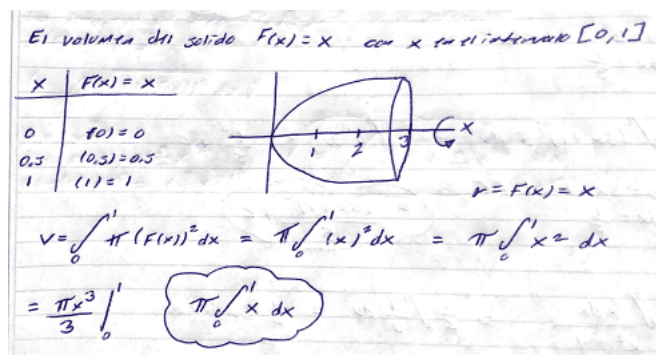 El volumen del solido F(x) = x con x en el intervalo [0, 1]
x F(x) = x
0 f(0) = 0
0.5 (0.5) = 0.5
1 (1) = 1
1 2 3 x
r = F(x) = x
V = ∫₀¹ π (F(x))² dx = π ∫₀¹ (x)² dx = π ∫₀¹ x² dx
= πx³/3 |₀¹ π ∫₀¹ x dx